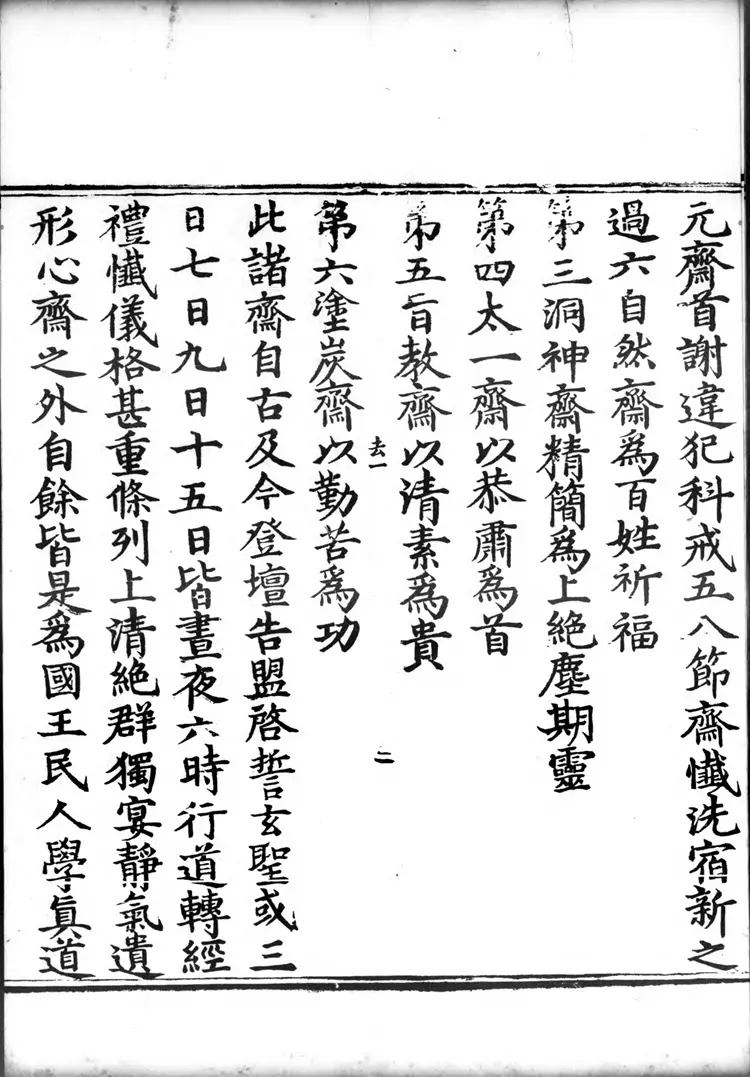 元齋首謝違犯科戒五八節齋懺洗宿新之
過六自然齋爲百姓祈福
第三洞神齋精簡爲上絶塵期靈
第四太一齋以恭肅爲首
第五旨教齋以清素爲貴
去一
二
第六塗炭齋以勤苦爲功
此諸齋自古及今登壇告盟啓誓玄聖或三
日七日九日十五日皆晝夜六時行道轉經
禮懺儀格甚重條列上清絶群獨宴靜氣遺
形心齋之外自餘皆是爲國王民人學真道